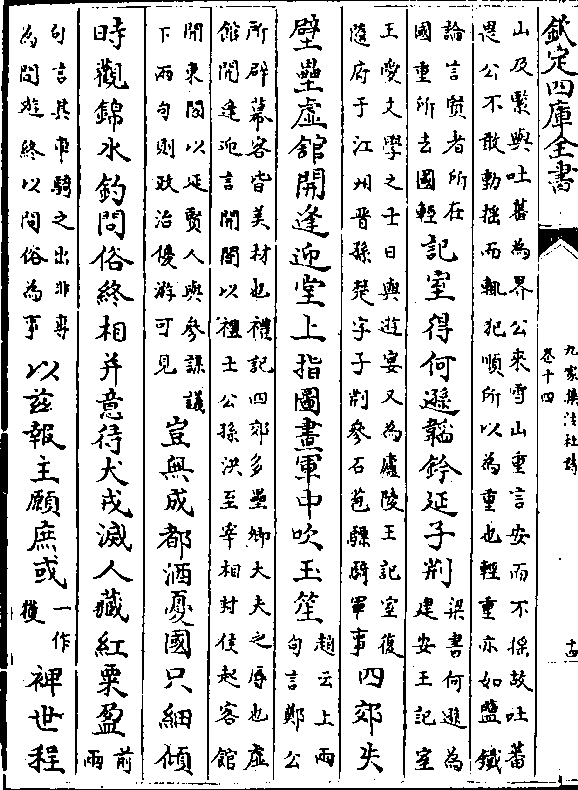 欽定四庫全書
山及繫與吐蕃為界公來雪山重言安而不搖故吐蕃
畏公不敢動搖而輒犯順所以為重也輕重亦如鹽鐵
論言賢者所在
國重所去國輕
記室得何遜韜鈐延子荆
梁書何遜為
建安王記室
王愛文學之士日與遊宴又為廬陵王記室復
隨府于江州晉孫楚字子荆參石苞驃騎軍事
四郊失
壁壘虛舘開逢迎堂上指圖畫軍中吹玉笙
趙云上兩
句言鄭公
所辟幕客皆美材也禮記四郊多壘卿大夫之辱也虛
舘開逢迎言開閤以禮士公孫洪至宰相封侯起客舘
開東閤以延賢人與參謀議
下兩句則政治優游可見
豈無成都酒憂國只細傾
時觀錦水釣問俗終相并意待犬戎滅人藏紅粟盈
前
兩
句言其車騎之出非專
為問遊終以問俗為事
以兹報主願庶或
一作
獲
裨世程
九家集注杜詩
卷十四